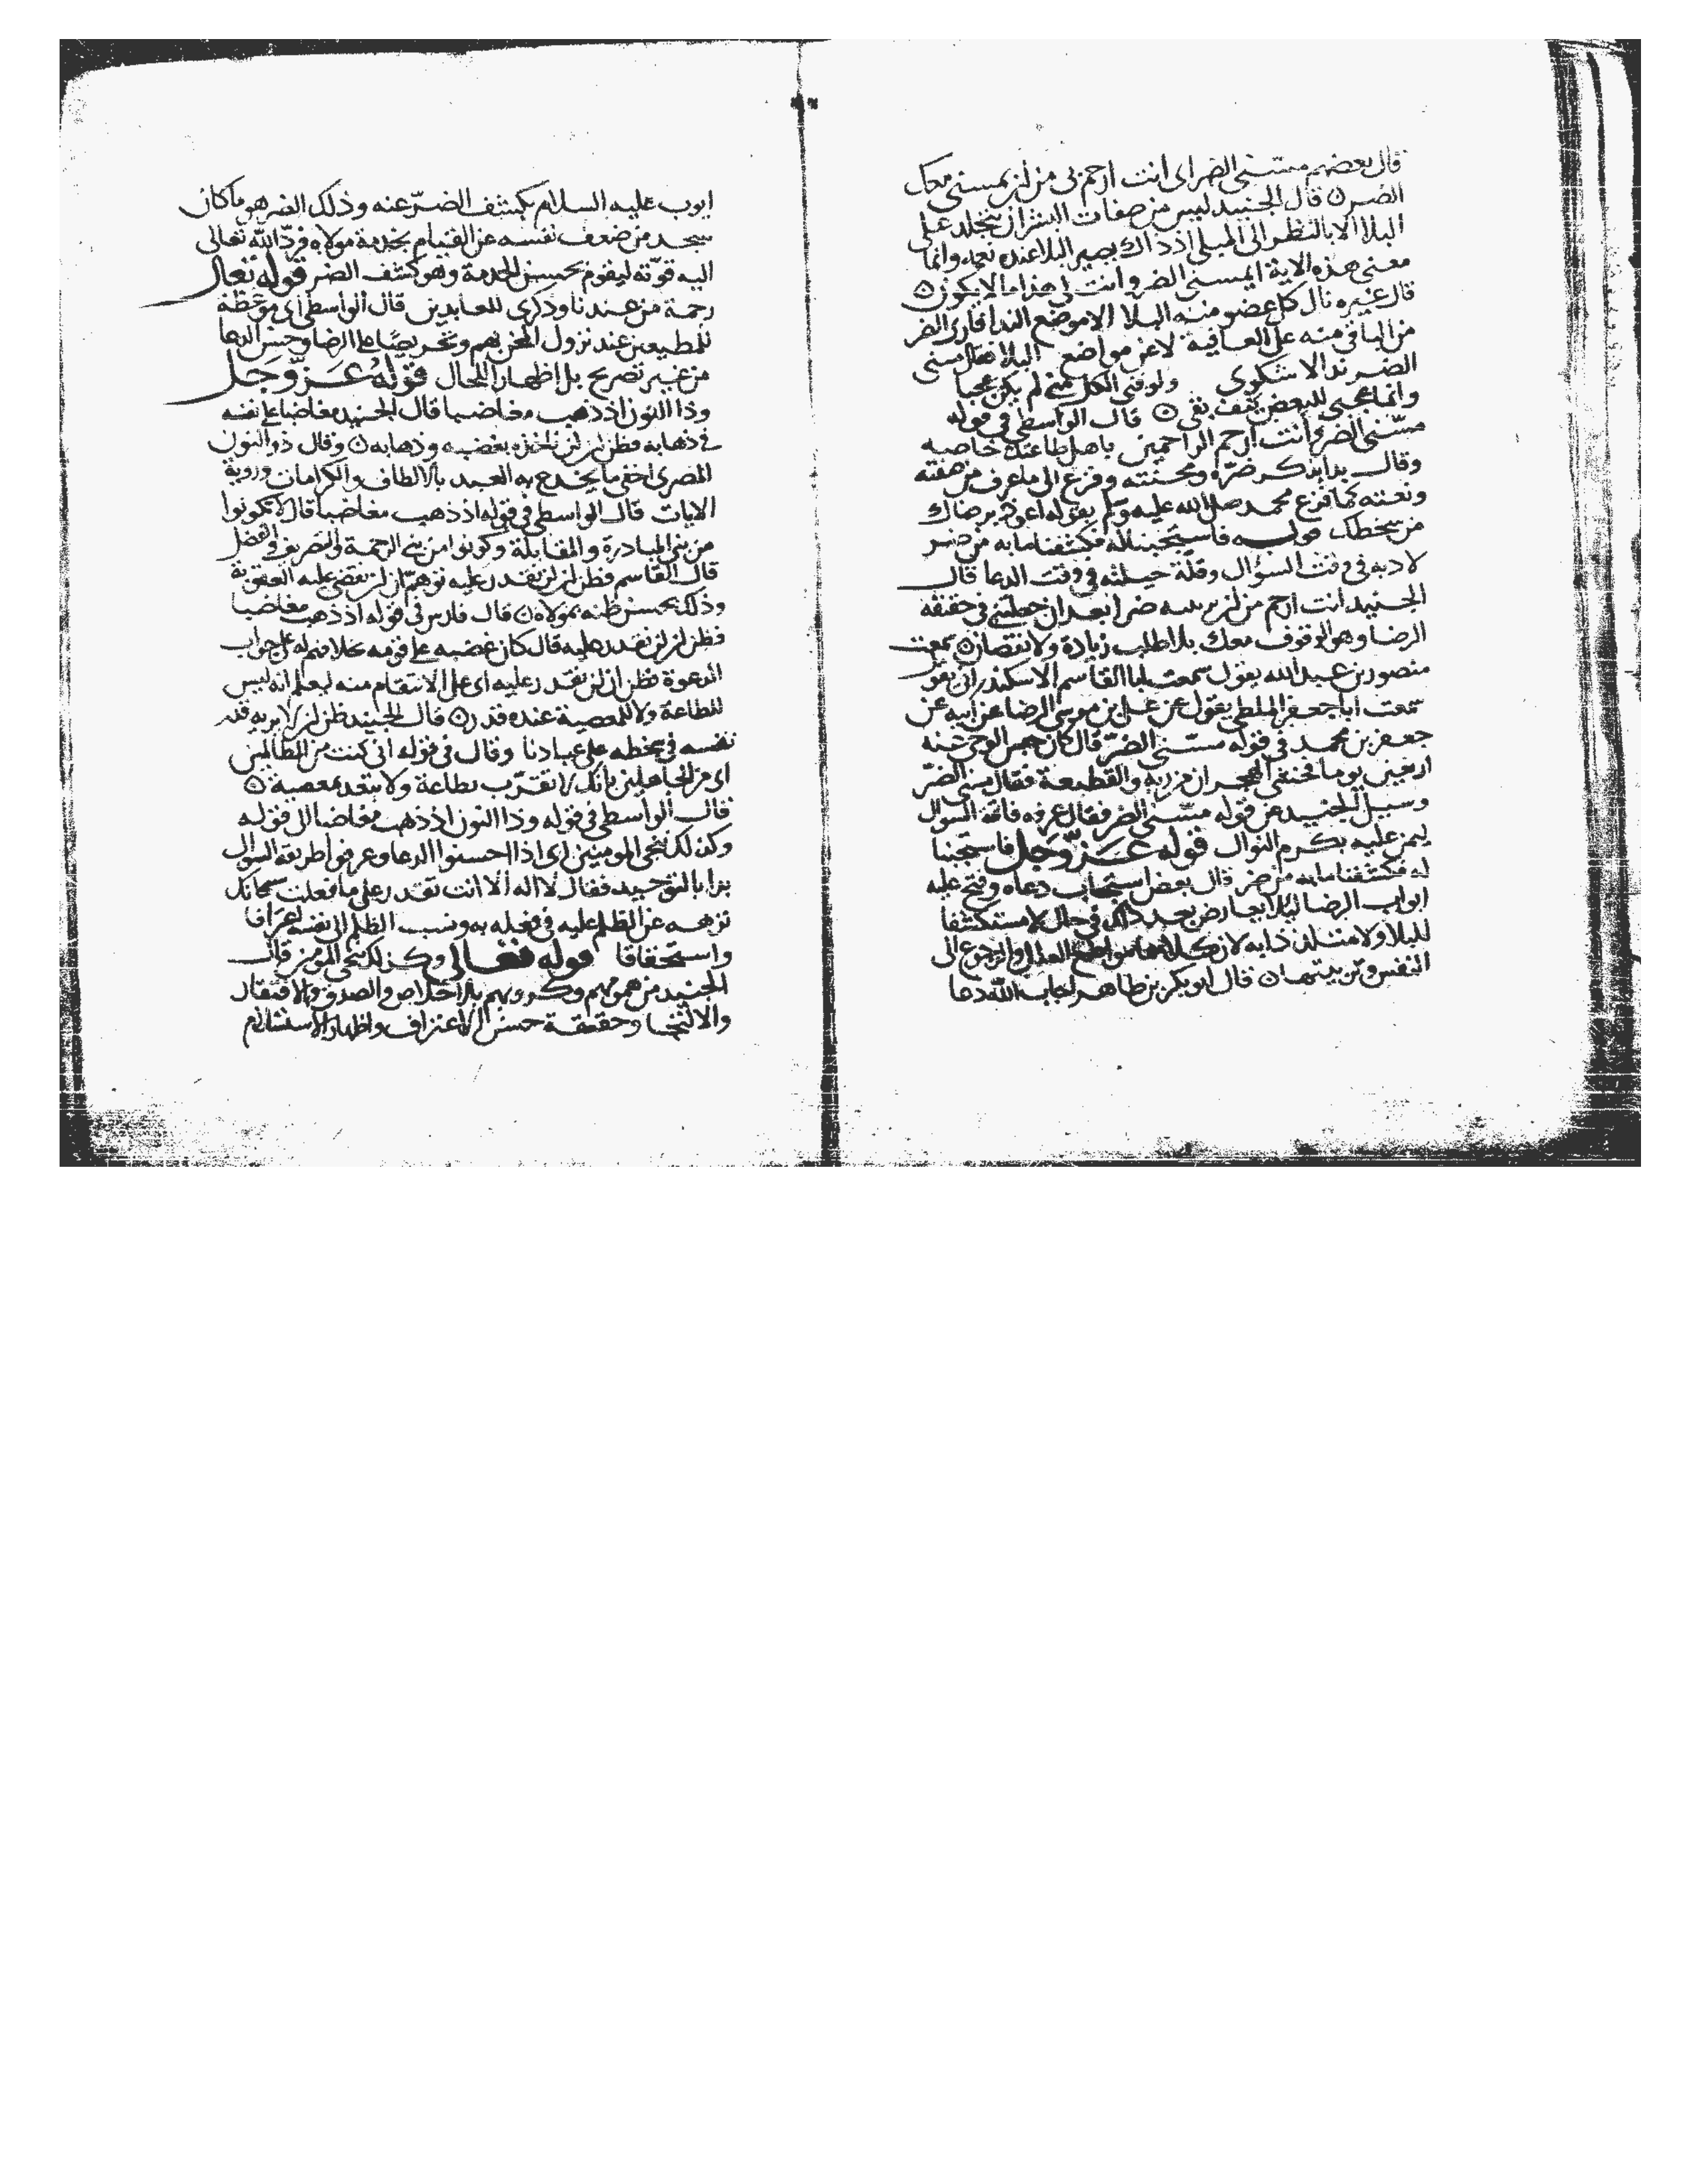 قال بعضهم مسني الضر اى انت ارحم بى من ان يمسني معك
الضر ن قال الجنيد ليس من صفات البشر ان يتجلد على
البلا الا بالنظر الى المبلى اذ ذاك يصير البلا عنده نعمة وانما
معنى هذه الاية ايمسني الضر وانت لى هذا ما لا يكون ن
قال غيره نال كل عضو منه البلا الا موضع الندا فارى الضر
من الباقى منه على العافية لا عن مواضع البلا فقال مسنى
الضر ندا لا شكوى ولو فنى الكل منى لم يكن عجبا
وانما عجبى للبعض كيف بقى ن قال الواسطى فى قوله
مسنى الضر وانت ارحم الراحمين باهل طاعتك خاصة
وقال بدا بذكر ضره ومحنته وفزع الى ما عرف من صفته
ونعته كما فزع محمد صلى الله عليه وسلم بقوله اعوذ برضاك
من سخطك قوله فاستجبنا له فكشفنا ما به من ضر
لادبه فى وقت السؤال وقلة حيلته فى وقت الدعا قال
الجنيد انت ارحم من ان ضرا بعد ان فى حقيقة
الرضا وهو الوقوف معك بلا طلب زيادة ولا نقصان ن سمعت
منصور بن عبد الله يقول سمعت ابا القاسم الاسكندرانى يقول
سمعت ابا جعفر الملطى يقول عن على بن موسى الرضا عن ابيه عن
جعفر بن محمد فى قوله مسنى الضر قال كان حبس الوحى عنه
اربعين يوما فخشى الهجران من ربه والقطيعة فقال مسنى الضر
وسيل الجنيد عن قوله مسنى الضر فقال عرفه فاقة السوال
ليمن عليه بكرم النوال قوله عز وجل فاستجبنا
له فكشفنا ما به من ضر قال بعض استجاب دعاه وفتح عليه
ابواب الرضا ليلا يعارض بعد ذلك فى حال لا مستكشفا
للبلا ولا متلذذا به لان كلاهما مواضع العلل والرجوع الى
النفس وتربيتها ن قال ابو بكر بن طاهر اجاب الله دعا
ايوب عليه السلام بكشف الضر عنه وذلك الضر هو ما كان
يجد من ضعف نفسه عن القيام بخدمة مولاه فرد الله تعالى
اليه قوته ليقوم بحسن الخدمة وهو كشف الضر قوله تعالى
رحمة من عندنا وذكرى للعابدين قال الواسطى اى موعظة
للمطيعين عند نزول المحن بهم وتحريضا على الرضا وحسن الدعا
من غير تصريح بل اظهار الحال قوله عز وجل
وذا النون اذ ذهب مغاضبا قال الجنيد مغاضبا على نفسه
فى ذهابه فظن ان لن ناخذه بغضبه وذهابه ن وقال ذو النون
المصرى اخفى ما يخدع به العبد بالالطاف والكرامات وروية
الايات قال الواسطى فى قوله اذ ذهب مغاضبا قال لا تكونوا
من بنى المبادرة والمقابلة وكونوا من بنى الرحمة والفضل
قال القاسم فظن ان لن نقدر عليه توهم ان لن نقضى عليه العقوبة
وذلك بحسن ظنه بمولاه ن قال فارس فى قوله اذ ذهب مغاضبا
فظن ان لن نقدر عليه قال كان غضبه على قومه خلافهم له على جواب
الدعوة فظن ان لن نقدر عليه اى على الانتقام منه ليعلم انه ليس
للطاعة ولا للمعصية عنده قدر ن قال الجنيد ظن ان لا يريه قدر
نفسه فى سخطه على عبادنا وقال فى قوله انى كنت من الظالمين
اى من الجاهلين بانك لا تقرب بطاعة ولا تبعد بمعصية ن
قال الواسطى فى قوله وذا النون اذ ذهب مغاضبا الى قوله
وكذلك ننجى المومنين اى اذا احسنوا الدعا وعرفوا طريقة السوال
بدا بالتوحيد فقال لا اله الا انت تقدر على ما فعلت سبحانك
نزهه عن الظلم عليه فى فعله به ونسب الظلم الى نفسه اعترافا
واستحقاقا قوله تعالى وكذلك ننجى المومنين قال
الجنيد من همومهم وكروبهم بالاخلاص والصدق والافتقار
والالتجا وحقيقة حسن الاعتراف واظهار الاستسلام